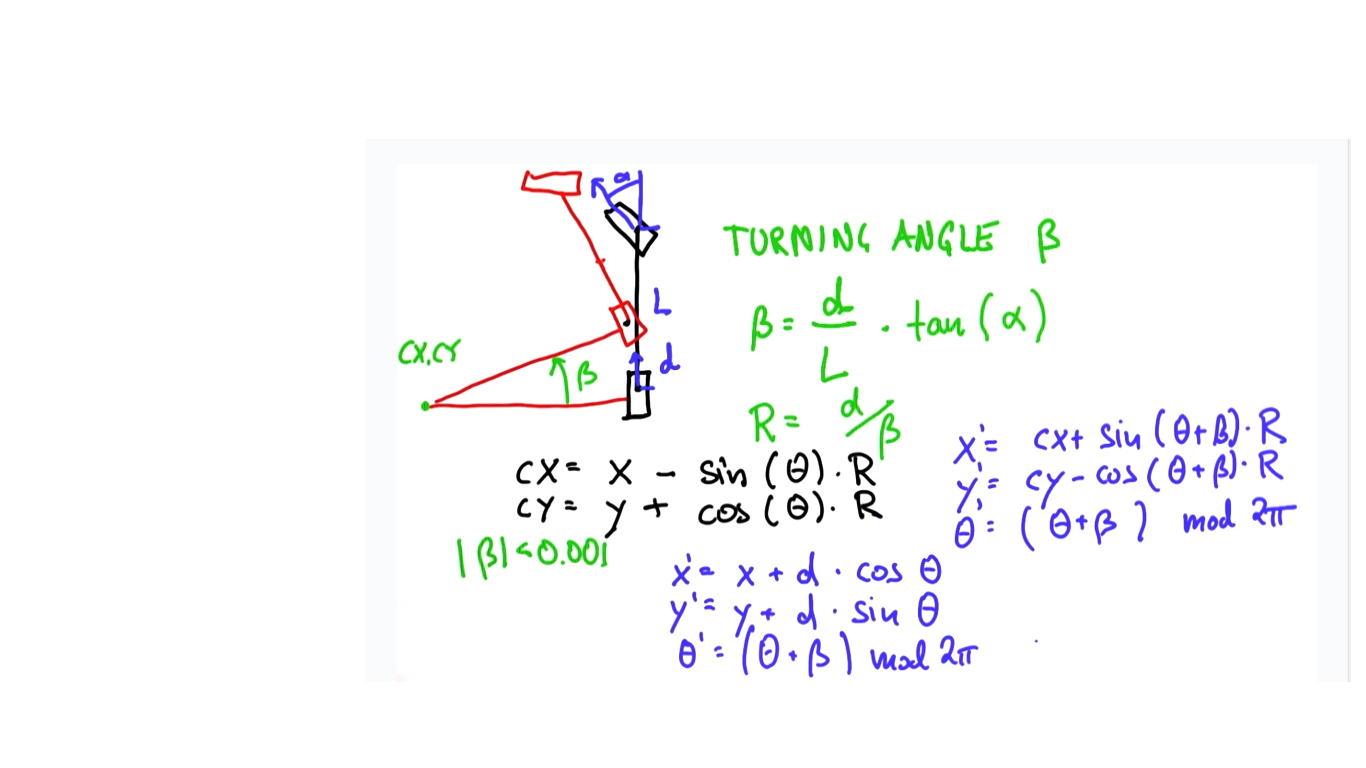 α
L
d
CX,CY
β
TURNING ANGLE β
β = d/L · tan(α)
R = d/β
CX = X - sin(θ)·R
CY = y + cos(θ)·R
X' = CX + sin(θ+β)·R
y' = CY - cos(θ+β)·R
θ' = (θ+β) mod 2π
|β| < 0.001
x' = x + d · cos θ
y' = y + d · sin θ
θ' = (θ+β) mod 2π